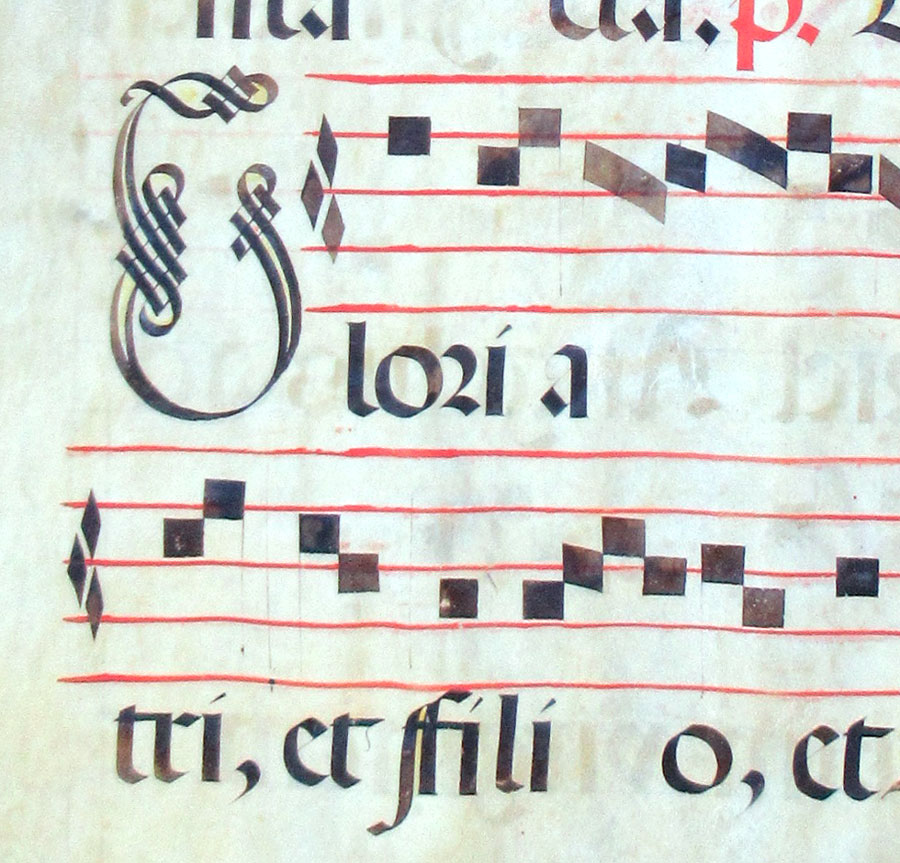 p.
Glori a
tri, et ffili o, et